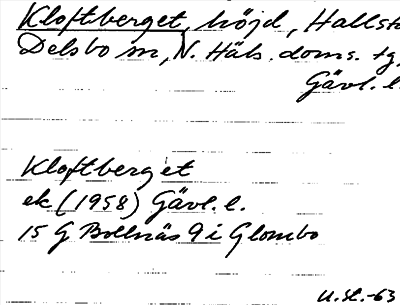 Kloftberget, höjd, Hallst
Delsbo sn, N. Häls. doms. tg,
Gävl. l.
Kloftberget
ek (1958) Gävl. l.
15 G Bollnäs 9 i Glombo
U.St.-63